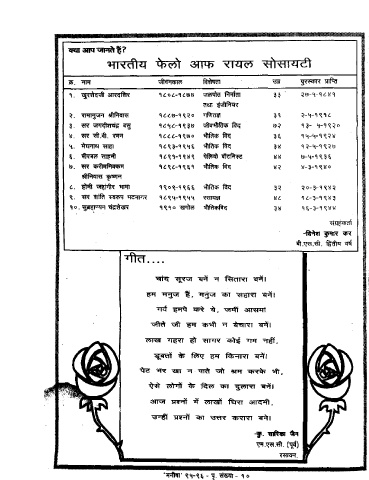 क्या आप जानते हैं?
भारतीय फेलो आफ रायल सोसायटी
क्र. नाम जीवनकाल विशेषता उम्र पुरस्कार प्राप्ति
१. खुरसेदजी आरदशिर १८०८-१८७७ जहाजोत निर्माता ३३ २७-५-१८४१
तथा इंजीनियर
२. रामानुजन श्रीनिवास १८८७-१९२० गणितज्ञ ३१ २-५-१९१८
३. सर जगदीशचंद्र बसु १८५८-१९३७ जीवभौतिक विद ७२ १३-५-१९२०
४. सर सी.वी. रमन १८८८-१९७० भौतिक विद ३६ १५-५-१९२४
५. मेघनाथ साहा १८९३-१९५६ भौतिक विद ३४ १२-५-१९२७
६. बीरबल साहनी १८९१-१९४९ पेलियो बॉटनिस्ट ४४ ७-५-१९३६
७. सर करीमनिक्कम १८९८-१९६१ भौतिक विद ४२ ४-३-१९४०
श्रीनिवास कृष्णन
८. होमी जहांगीर भाभा १९०९-१९६६ भौतिक विद ३२ २०-३-१९४२
९. सर शांति स्वरुप भटनागर १८९५-१९५५ रसायन्न ४८ १८-३-१९४३
१०. सुब्रहमण्यन चंद्रशेखर १९१० खगोल भौतिकविद ३४ १६-३-१९४४
संग्रहकर्ता
-दिनेश कुमार कर
बी.एस.सी. द्वितीय वर्ष
गीत....
चांद सूरज बनें न सितारा बनें।
हम मनुज हैं, मनुज का सहारा बनें।
गर्व हमपे करे ये, जमीं आसमां
जीते जी हम कभी न बेचारा बनें।
लाख गहरा हो सागर कोई गम नहीं,
डूबतों के लिए हम किनारा बनें।
पेट भर खा न पाते जो श्रम करके भी,
ऐसे लोगों के दिल का दुलारा बनें।
आज प्रश्नों में लाखों घिरा आदमी,
उन्हीं प्रश्नों का उत्तर करारा बनें।
-कु. सारिका जैन
एम.एस.सी. (पूर्व)
रसायन.
'मनीषा' ९५-९६ - पृ. संख्या - १०